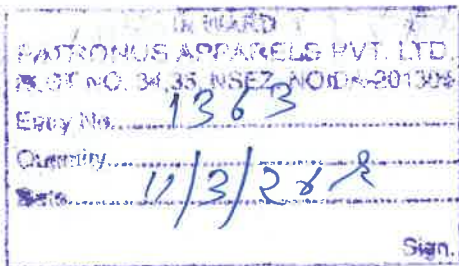 IN WARD
PATRONUS APPARELS PVT. LTD.
PLOT NO. 34,35, NSEZ, NOIDA-201305
Entry No. 1363
Quantity
Date 11/3/24
Sign.